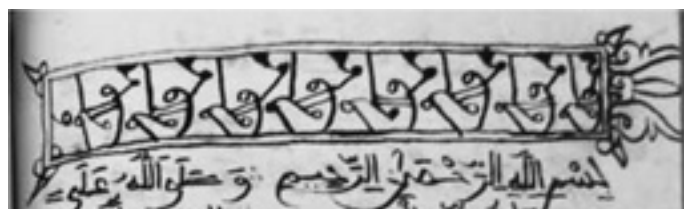 بِسْمِ اللَّهِ الرَّحْمَنِ الرَّحِيمِ وَصَلَّى اللَّهُ عَلَى